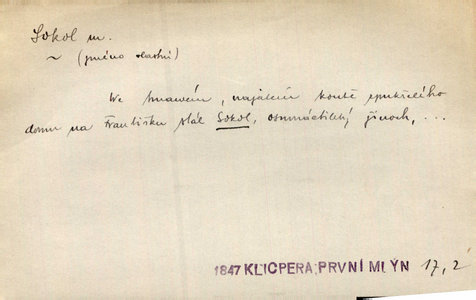 Sokol m.
~ (jméno vlastní)
We tmawém, najatém koutě zpukřelého
domu na Františku stál Sokol, osmnáctiletý jinoch, ...
1847 KLICPERA, PRVNÍ MLÝN 17, 2